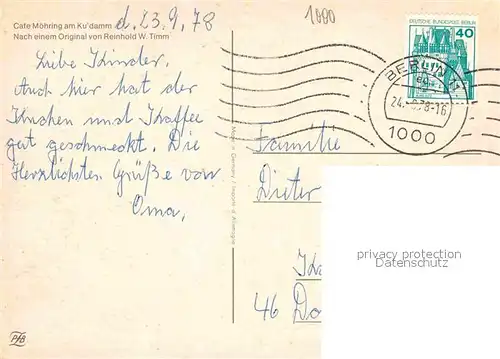 Cafe Möhring am Ku'damm
Nach einem Original von Reinhold W. Timm
d. 23.9.78
1000
Liebe Kinder,
Auch hier hat der
Kuchen und Kaffee
gut geschmeckt. Die
Herzlichsten Grüße von
Oma.
DEUTSCHE BUNDESPOST BERLIN
40
BERLIN 11
24.-9.78-16
1000
Familie
Dieter
46 Do
privacy protection
Datenschutz
PFB